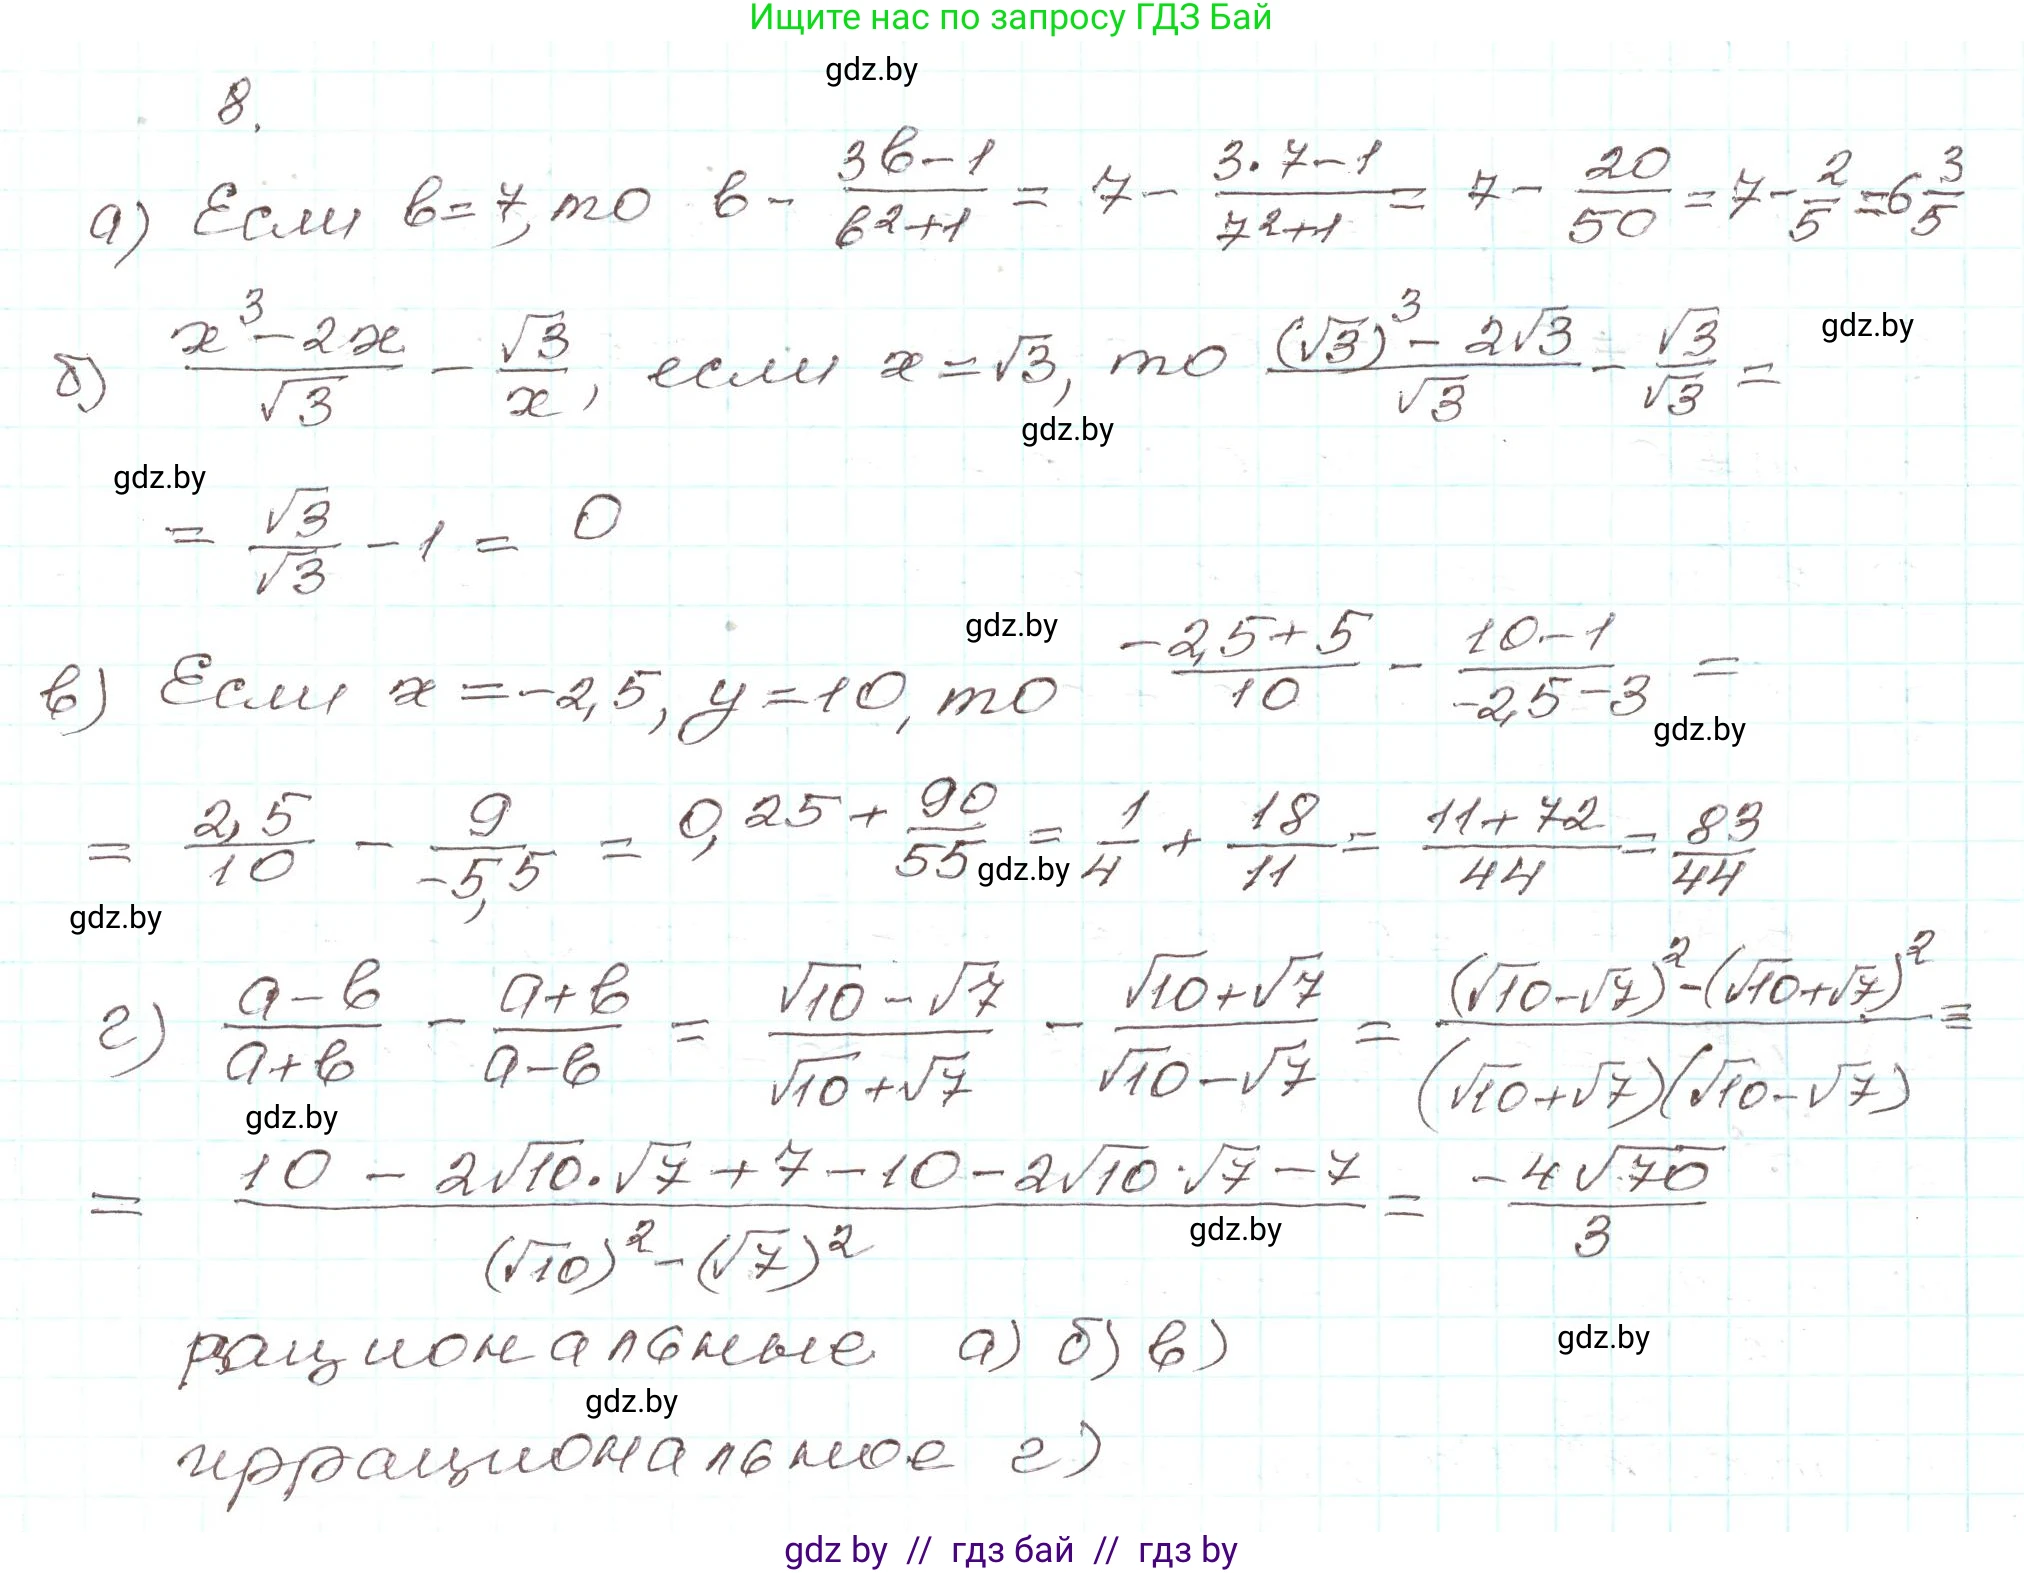 Ищите нас по запросу ГДЗ Бай
gdz.by
8.
а) Если b=7, то b - (3b-1)/(b²+1) = 7 - (3·7-1)/(7²+1) = 7 - 20/50 = 7 - 2/5 = 6 3/5
б) (x³-2x)/√3 - √3/x, если x=√3, то ((√3)³-2√3)/√3 - √3/√3 =
gdz.by
gdz.by
gdz.by
= √3/√3 - 1 = 0
gdz.by
в) Если x=-2,5, y=10, то (-2,5+5)/10 - (10-1)/(-2,5-3) =
gdz.by
= 2,5/10 - 9/(-5,5) = 0,25 + 90/55 = 1/4 + 18/11 = (11+72)/44 = 83/44
gdz.by
gdz.by
г) (a-b)/(a+b) - (a+b)/(a-b) = (√10-√7)/(√10+√7) - (√10+√7)/(√10-√7) = ((√10-√7)²-(√10+√7)²)/((√10+√7)(√10-√7)) =
gdz.by
= (10-2√10·√7+7-10-2√10·√7-7)/((√10)²-(√7)²) = -4√70/3
gdz.by
рациональные а) б) в)
gdz.by
gdz.by
иррациональное г)
gdz by // гдз бай // гдз by